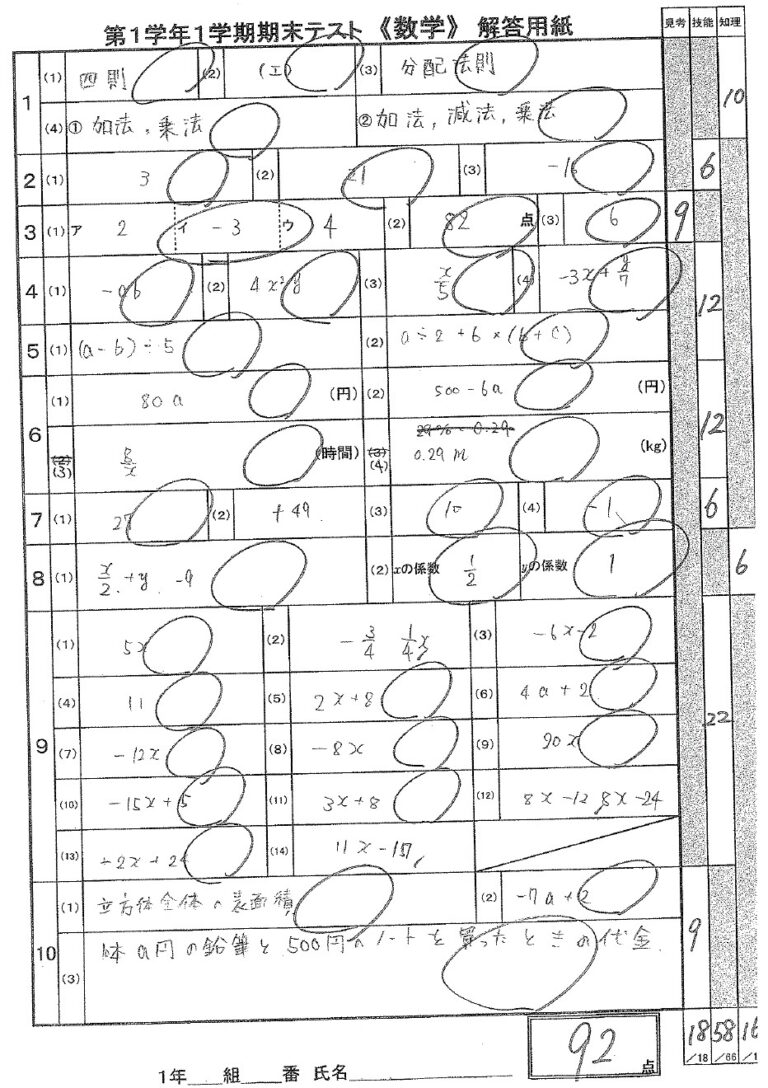 第1学年1学期期末テスト 《数学》 解答用紙
見考 技能 知理
1 (1) 四則 (2) (エ) (3) 分配法則 10
(4) ① 加法, 乗法 ② 加法, 減法, 乗法
2 (1) 3 (2) 21 (3) 6
3 (1) ア 2 イ -3 ウ 4 (2) 82 点 (3) 6 9
4 (1) -ab (2) 4x²y (3) x/5 (4) -3x+y/7 12
5 (1) (a-b)÷5 (2) a÷2+6×(b+c)
6 (1) 80a (円) (2) 500-6a (円) 12
(2) (3) 8/x (時間) (3) (4) 29% = 0.29 0.29m (kg)
7 (1) 28 (2) +49 (3) 10 (4) -1 6
8 (1) x/2 +y -9 (2) xの係数 1/2 yの係数 1 6
9 (1) 5x (2) -3/4 1/4x (3) -6x-2
(4) 11 (5) 2x+8 (6) 4a+2 22
(7) -12x (8) -8x (9) 90x
(10) -15x+5 (11) 3x+8 (12) 8x-12 8x-24
(13) -2x+24 (14) 11x-15
10 (1) 立方体全体の表面積 (2) -7a+2
(3) 1本a円の鉛筆と500円のノートを買ったときの代金 9
1年 組 番 氏名 92 点 18/18 58/66 16